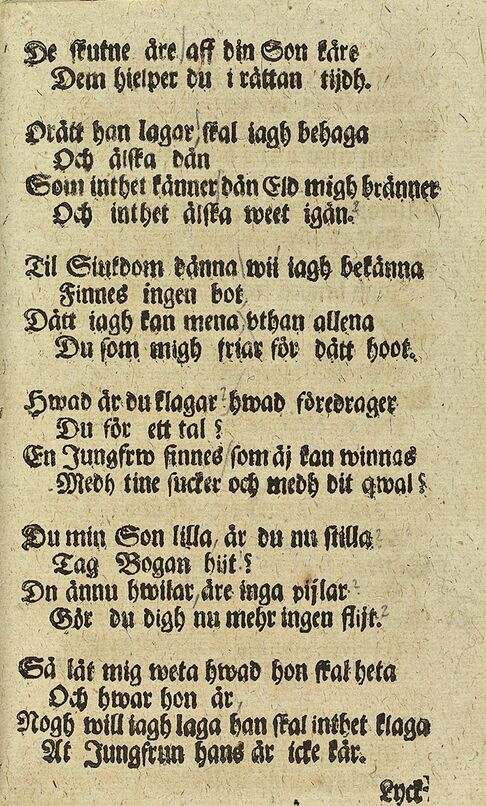 De skutne äre/ aff din Son käre
Dem hielper du i rättan tijdh.
Orätt han lagar/ skal iagh behaga
Och älska dän
Som inthet känner/ dän Eld migh bränner
Och inthet älska weet igän.
Til Siukdom dänna/ wil iagh bekänna
Finnes ingen bot/
Dätt iagh kan mena/ vthan allena
Du som migh friar för dätt hoot.
Hwad är du klagar/ hwad föredrager
Du för ett tal?
En Jungfrw finnes/ som äj kan winnas
Medh tine sucker och medh dit qwal?
Du min Son lilla/ är du nu stilla
Tag Bogan hijt?
Dn ännu hwilar/ äre inga pijlar
Gör du digh nu mehr ingen flijt.
Så lät mig weta hwad hon skal heta
Och hwar hon är/
Nogh will iagh laga han skal inthet klaga
At Jungfrun hans är icke kär.
Lyck-